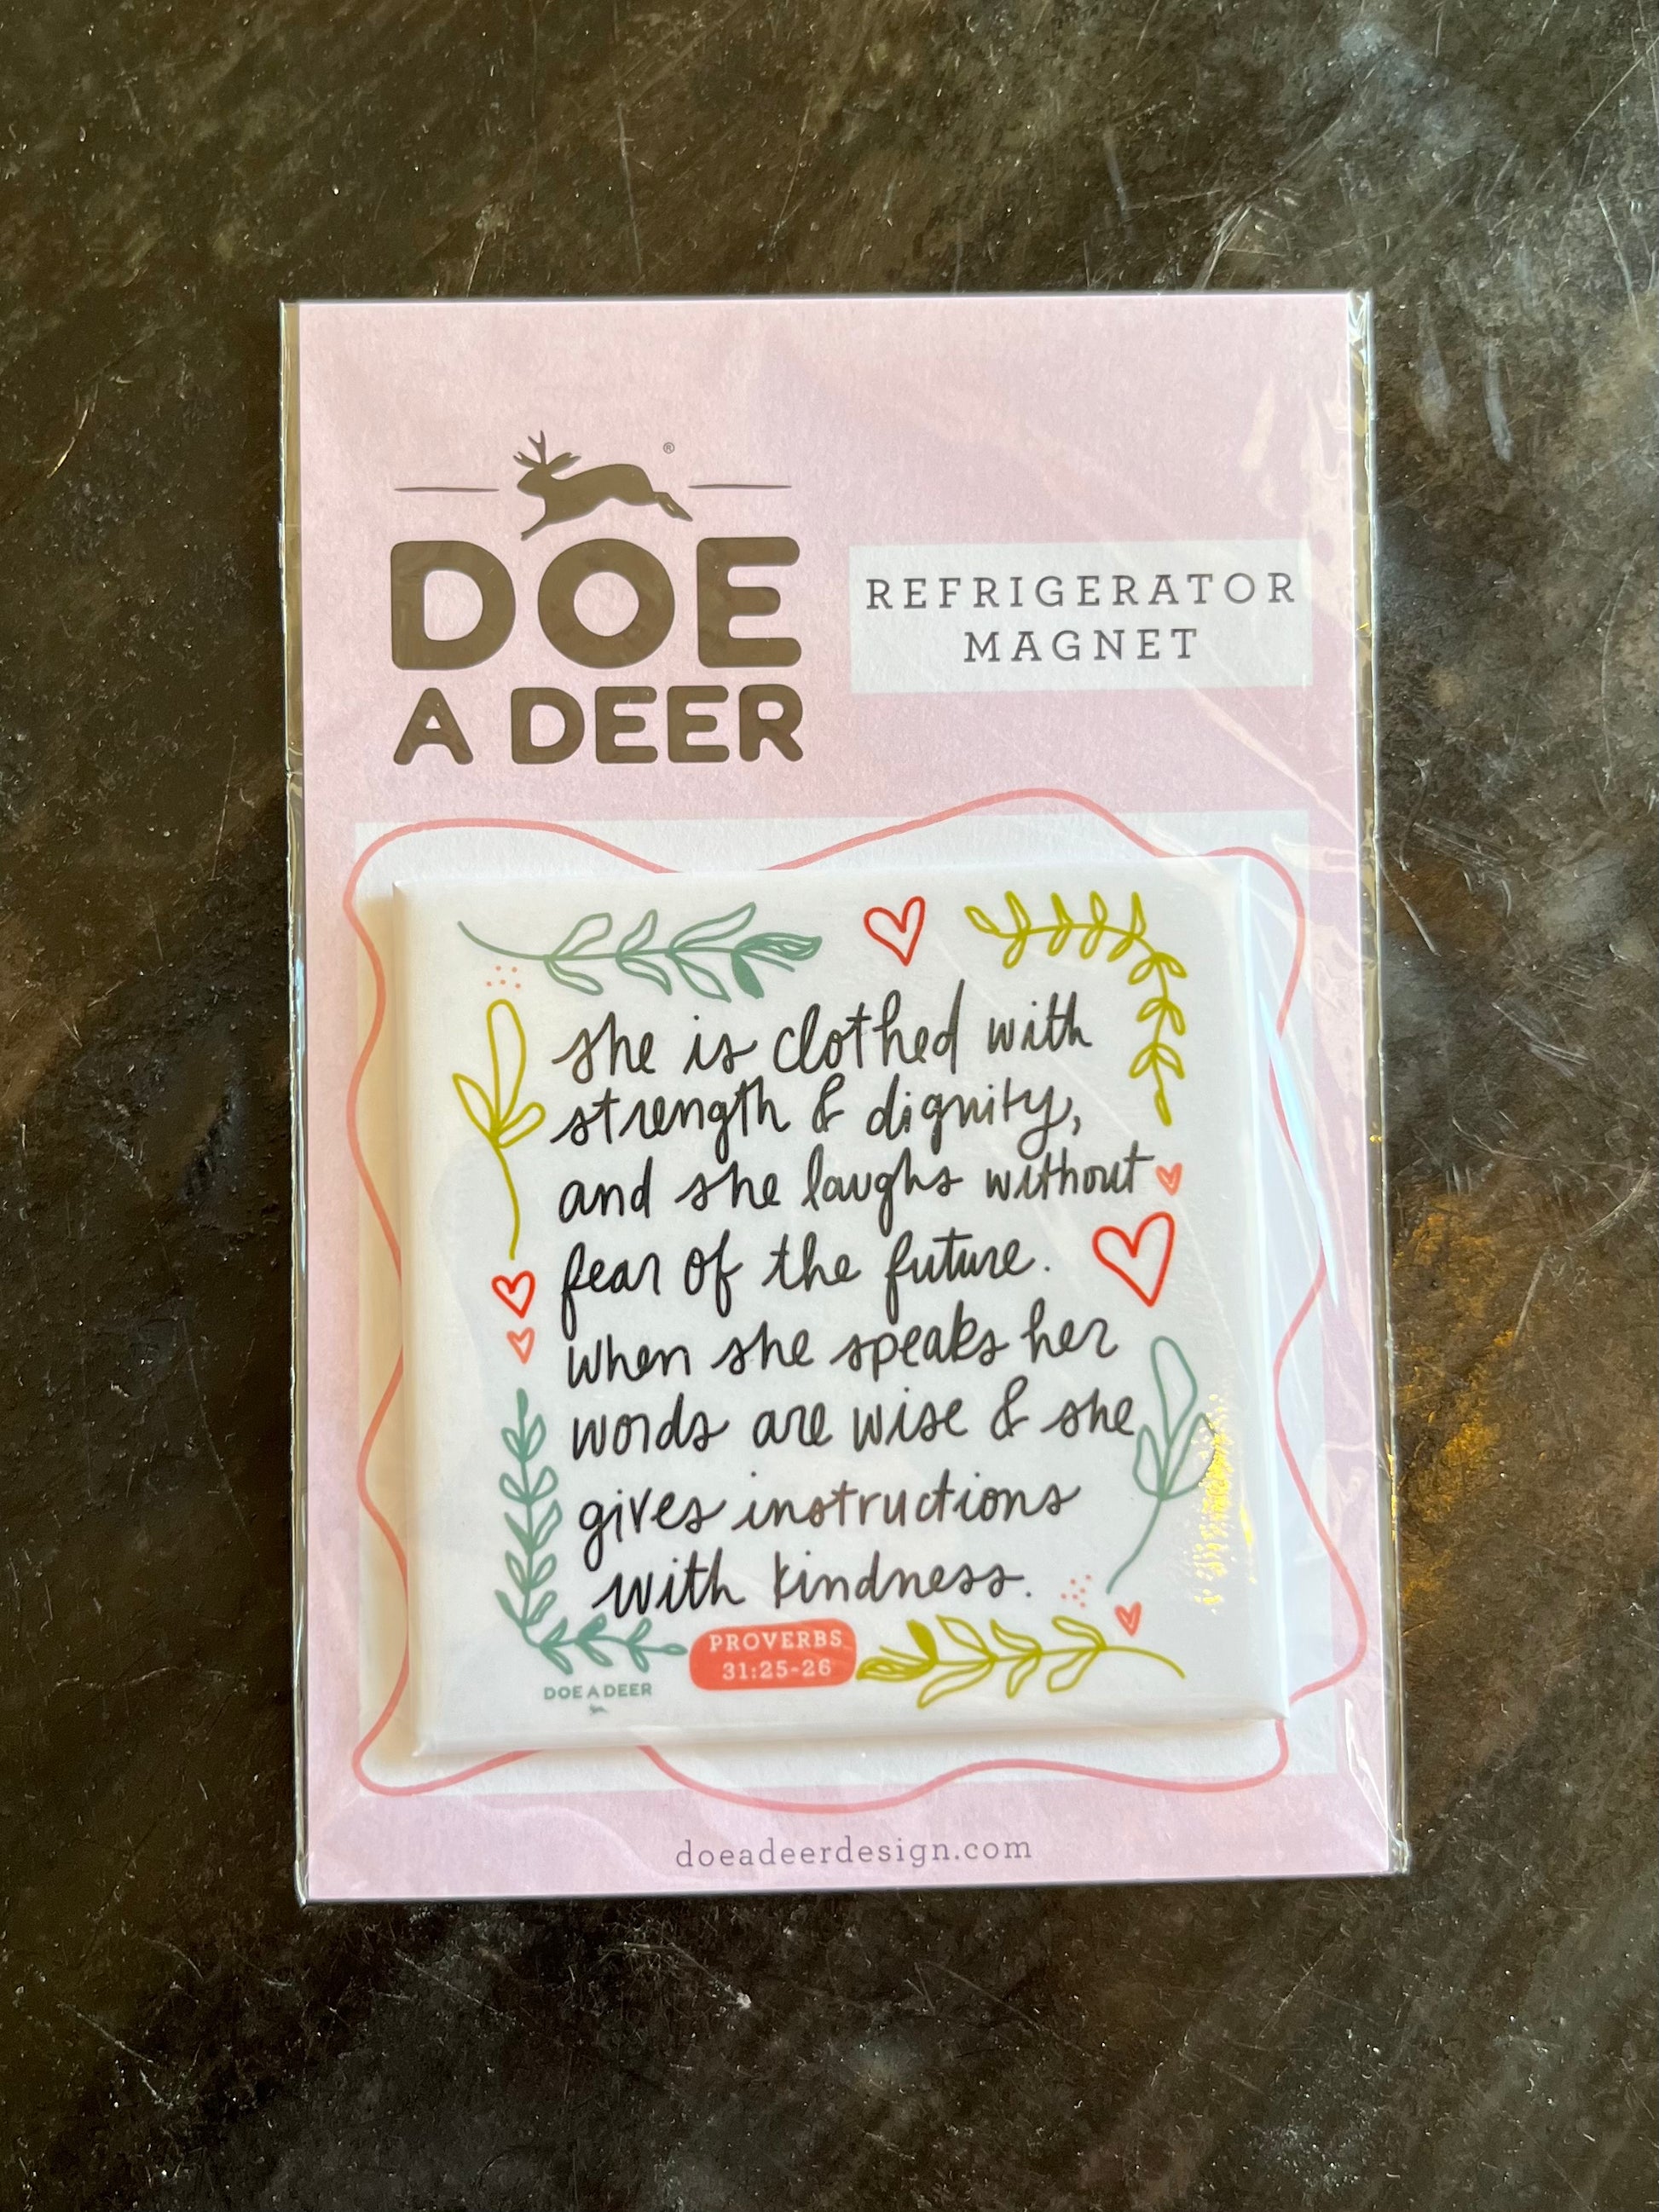 ®
DOE
A DEER
REFRIGERATOR
MAGNET
she is clothed with
strength & dignity,
and she laughs without
fear of the future.
when she speaks her
words are wise & she
gives instructions
with kindness.
PROVERBS
31:25-26
DOE A DEER
doeadeerdesign.com